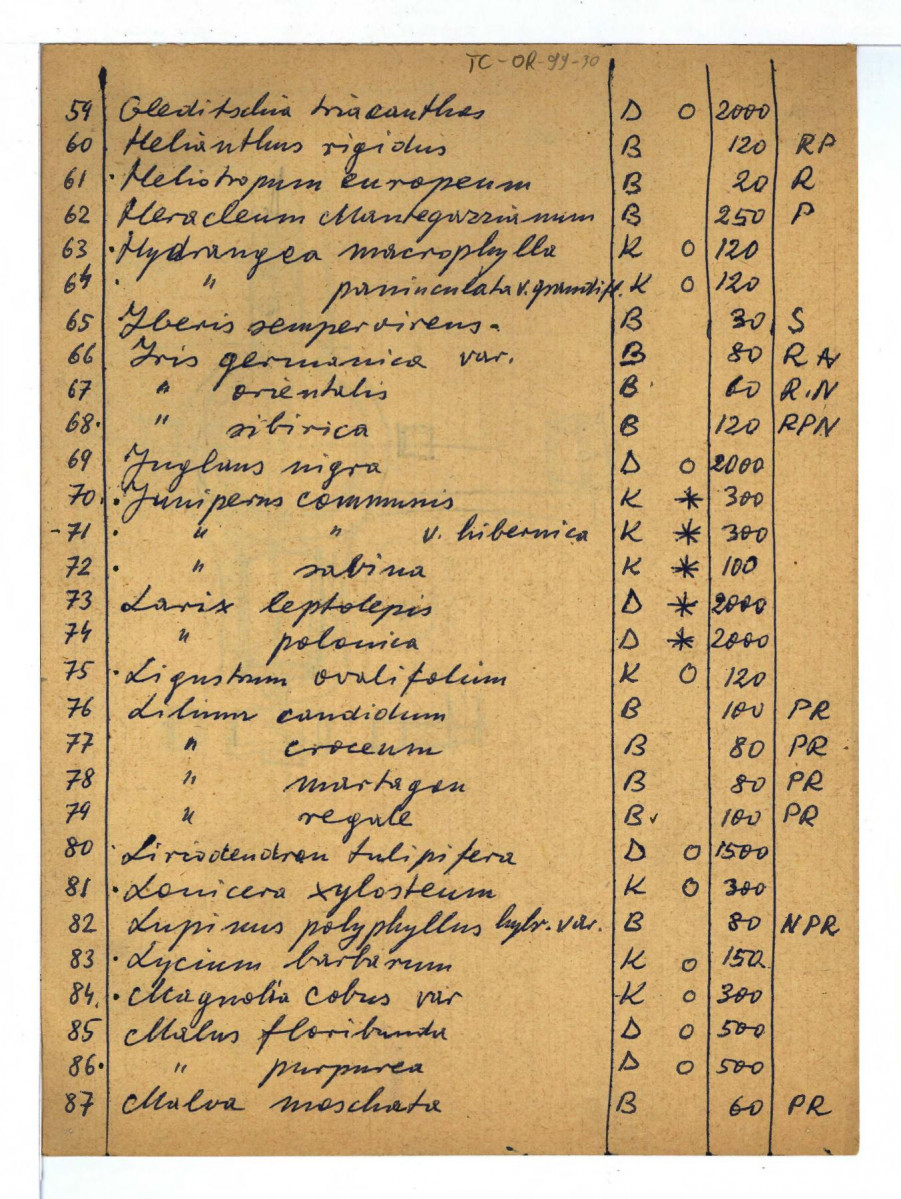 TC-OR-99-10
59 Gleditschia triacanthos D O 2000
60 Helianthus rigidus B 120 RP
61 Heliotropum europeum B 20 R
62 Heracleum Mantegazzianum B 250 P
63 Hydrangea macrophylla K O 120
64 " paninculata v. grandifl. K O 120
65 Iberis sempervirens. B 30 S
66 Iris germanica var. B 80 R N
67 " orientalis B 60 R.N
68. " sibirica B 120 RPN
69 Juglans nigra D O 2000
70. Juniperus communis K * 300
-71 " " v. hibernica K * 300
72 " sabina K * 100
73 Larix leptolepis D * 2000
74 " polonica D * 2000
75 Ligustrum ovalifolium K O 120
76 Lilium candidum B 100 PR
77 " croceum B 80 PR
78 " martagon B 80 PR
79 " regale B 100 PR
80 Liriodendron tulipifera D O 1500
81 Lonicera xylosteum K O 300
82 Lupinus polyphyllus hybr. var. B 80 NPR
83 Lycium barbarum K O 150
84. Magnolia cobus var K O 300
85 Malus floribunda D O 500
86. " purpurea D O 500
87 Malva moschata B 60 PR